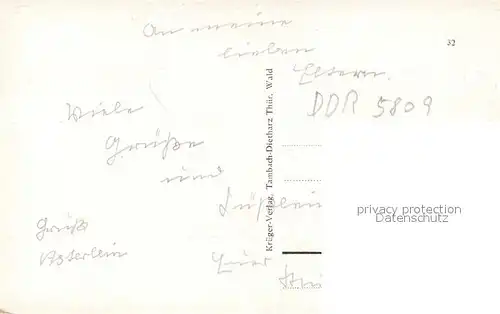 An meine
lieben
Eltern.
32
DDR 5809
Viele
Grüße
und
Küßlein
Gruß
Euer
Krüger-Verlag, Tambach-Dietharz Thür. Wald
privacy protection
Datenschutz